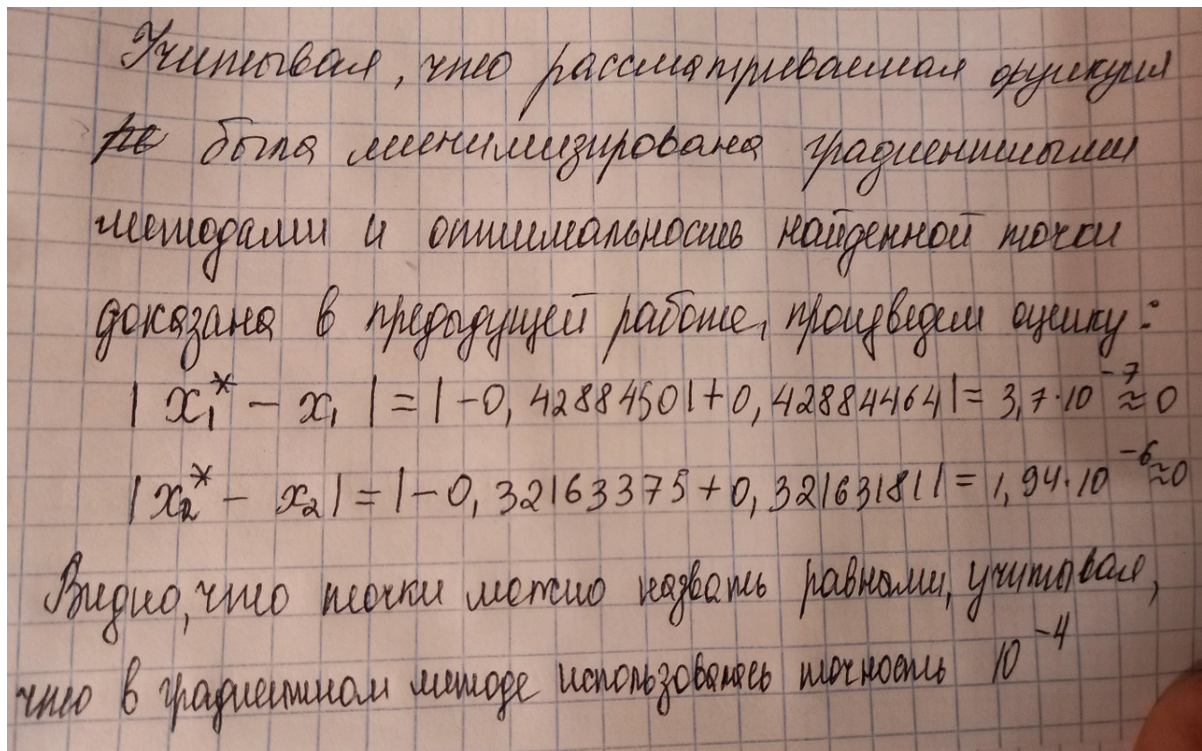 Учитывая, что рассматриваемая функция
была минимизирована градиентными
методами и оптимальность найденной точки
доказана в предыдущей работе, произведем оценку:
|x₁* - x₁| = |-0,42884501+0,42884464| = 3,7·10⁻⁷ ≈ 0
|x₂* - x₂| = |-0,32163375+0,32163181| = 1,94·10⁻⁶ ≈ 0
Видно, что точки можно назвать равными, учитывая,
что в градиентном методе использовалась точность 10⁻⁴